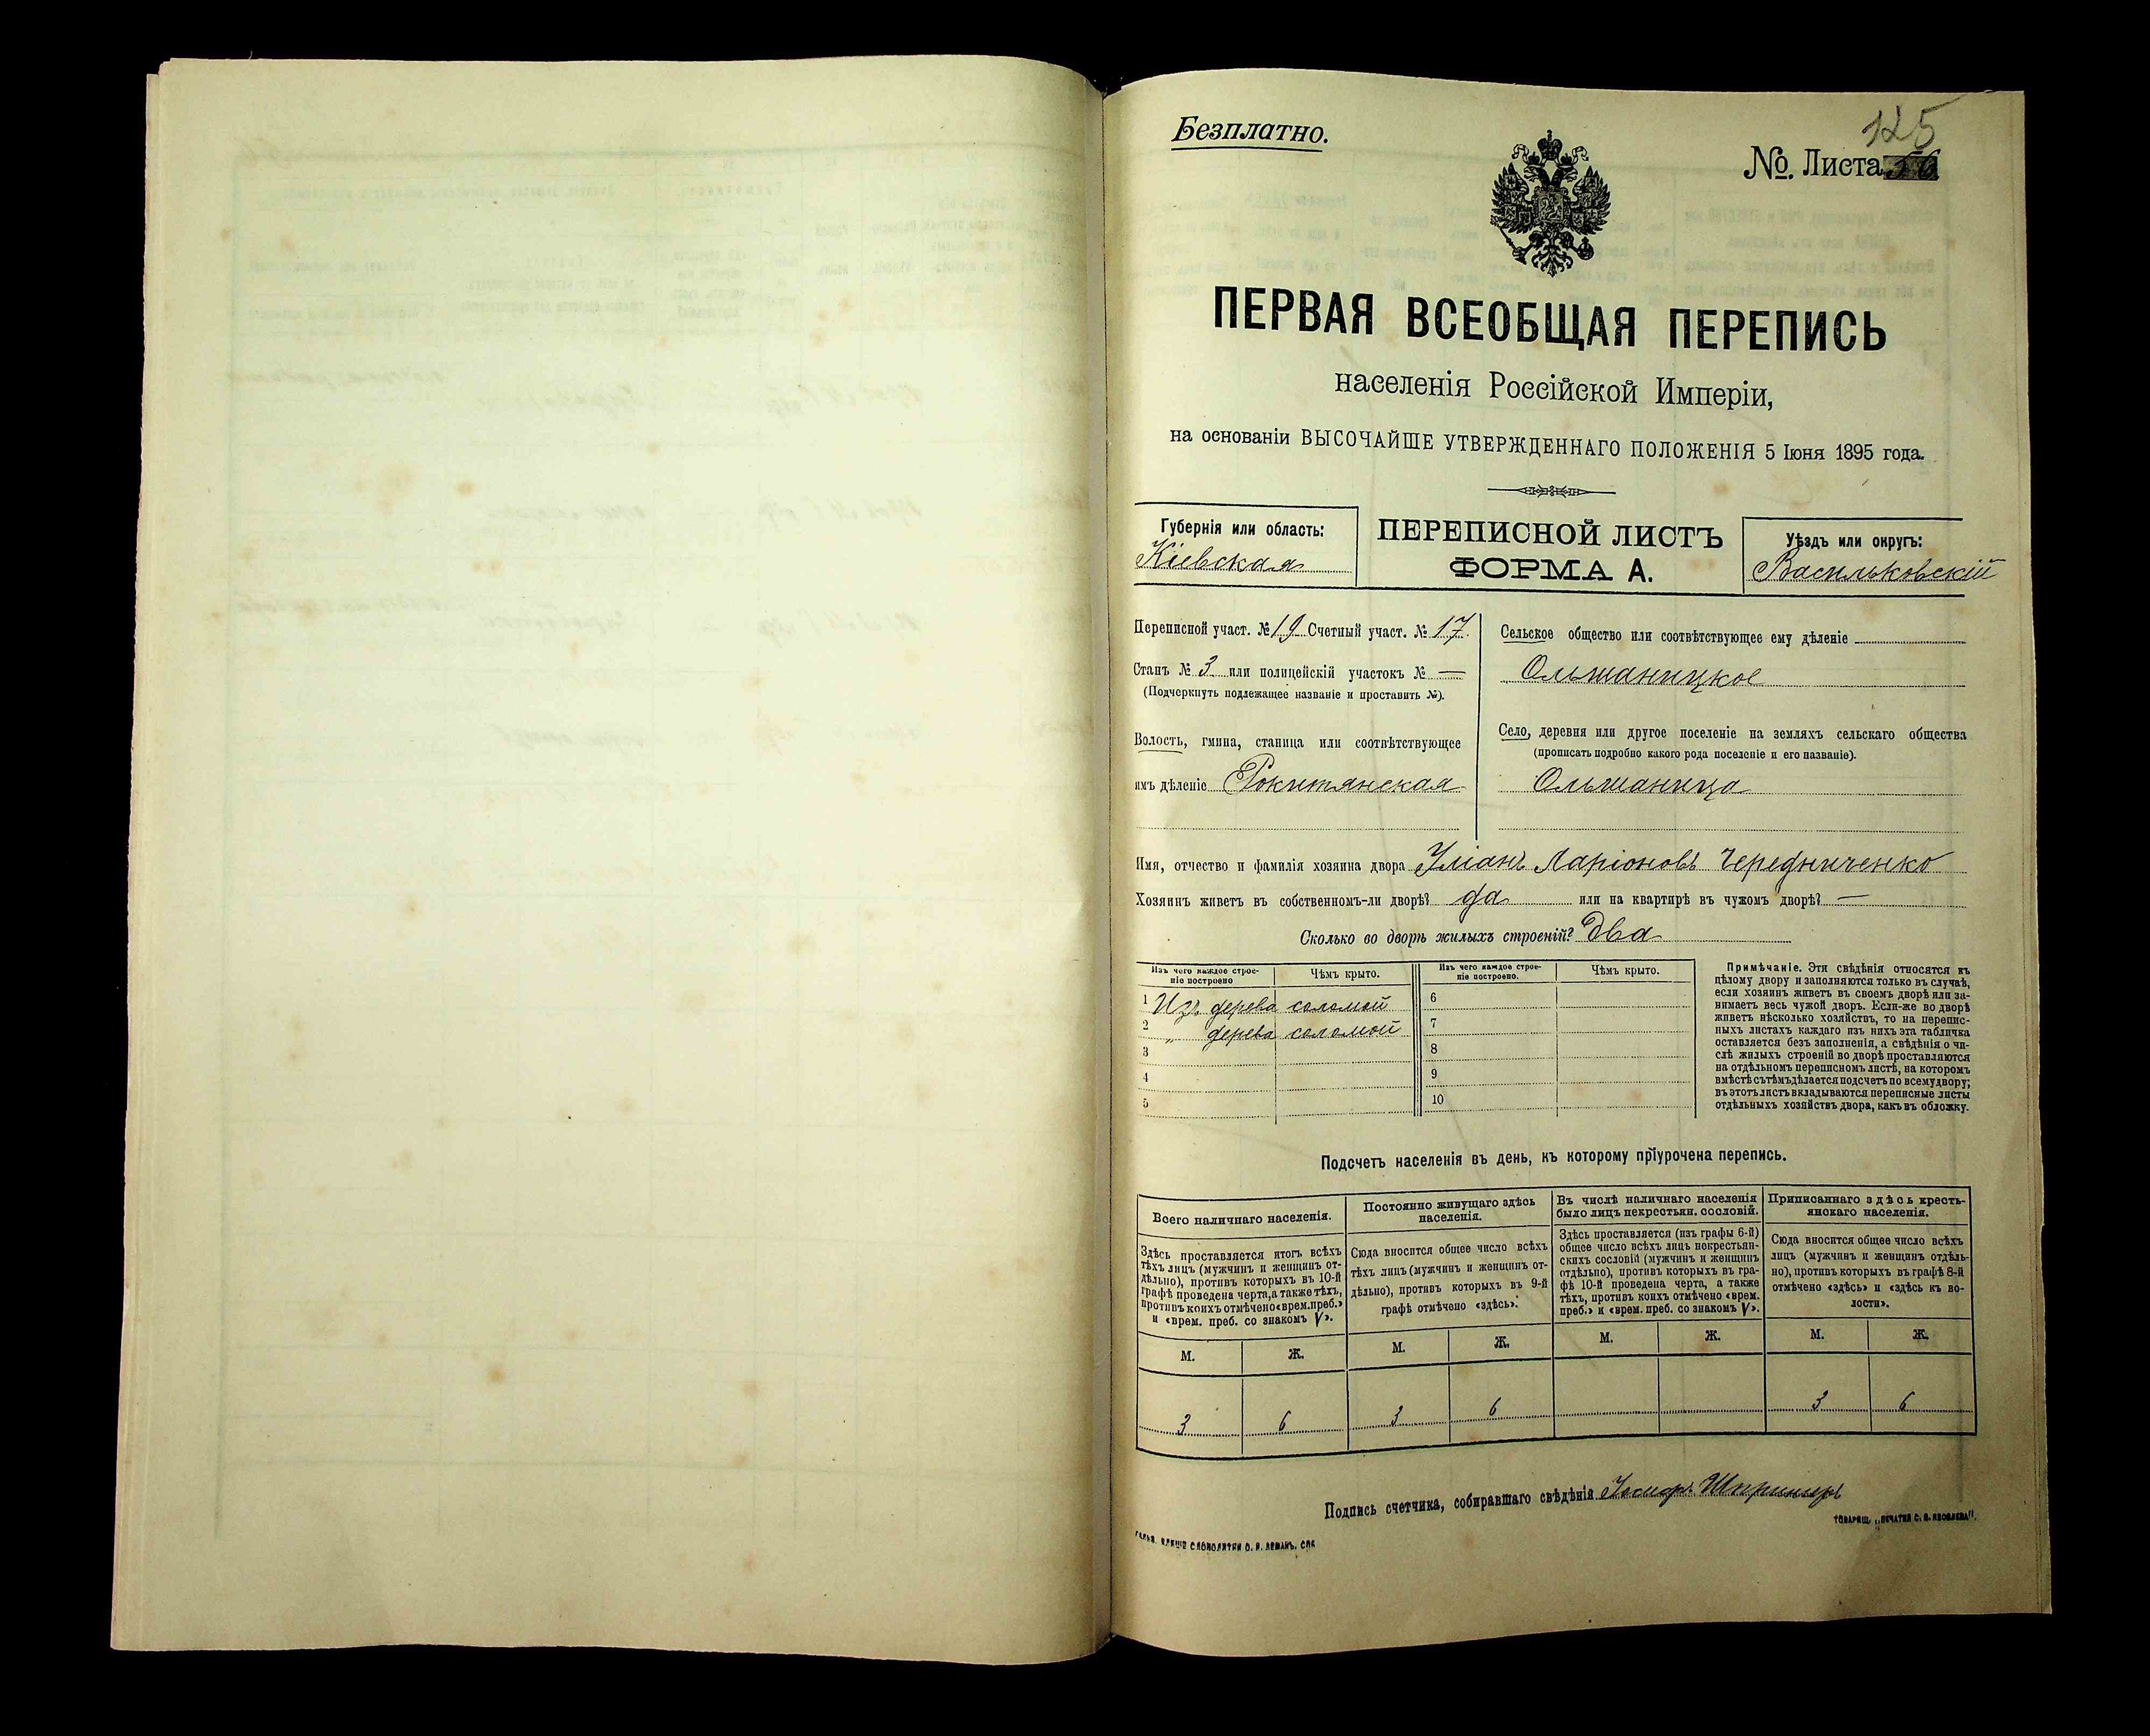 Безплатно.
125
№. Листа 56
ПЕРВАЯ ВСЕОБЩАЯ ПЕРЕПИСЬ
населенія Россійской Имперіи,
на основаніи ВЫСОЧАЙШЕ УТВЕРЖДЕННАГО ПОЛОЖЕНІЯ 5 Іюня 1895 года.
Губернія или область:
Кіевская
ПЕРЕПИСНОЙ ЛИСТЪ
ФОРМА А.
Уѣздъ или округъ:
Васильковскій
Переписной участ. № 19 Счетный участ. № 17.
Станъ № 3 или полицейскій участокъ № —
(Подчеркнуть подлежащее названіе и проставить №).
Волость, гмина, станица или соотвѣтствующее
имъ дѣленіе Рокитянская
Сельское общество или соотвѣтствующее ему дѣленіе
Ольшаницкое
Село, деревня или другое поселеніе на земляхъ сельскаго общества
(прописать подробно какого рода поселеніе и его названіе).
Ольшаница
Имя, отчество и фамилія хозяина двора Уліанъ Ларіоновъ Чередниченко
Хозяинъ живетъ въ собственномъ-ли дворѣ? да или на квартирѣ въ чужомъ дворѣ? —
Сколько во дворѣ жилыхъ строеній? Два
Изъ чего каждое строе-
ніе построено
Чѣмъ крыто.
1 Изъ дерева соломой
2 „ дерева соломой
3
4
5
Изъ чего каждое строе-
ніе построено.
Чѣмъ крыто.
6
7
8
9
10
Примѣчаніе. Эти свѣдѣнія относятся къ
цѣлому двору и заполняются только въ случаѣ,
если хозяинъ живетъ въ своемъ дворѣ или за-
нимаетъ весь чужой дворъ. Если-же во дворѣ
живетъ нѣсколько хозяйствъ, то на перепис-
ныхъ листахъ каждаго изъ нихъ эта табличка
оставляется безъ заполненія, а свѣдѣнія о чи-
слѣ жилыхъ строеній во дворѣ проставляются
на отдѣльномъ переписномъ листѣ, на которомъ
вмѣстѣ съ тѣмъ дѣлается подсчетъ по всему двору;
въ этотъ листъ вкладываются переписные листы
отдѣльныхъ хозяйствъ двора, какъ въ обложку.
Подсчетъ населенія въ день, къ которому пріурочена перепись.
Всего наличнаго населенія.
Здѣсь проставляется итогъ всѣхъ
тѣхъ лицъ (мужчинъ и женщинъ от-
дѣльно), противъ которыхъ въ 10-й
графѣ проведена черта, а также тѣхъ,
противъ коихъ отмѣчено «врем. преб.»
и «врем. преб. со знакомъ V».
М. Ж.
3 6
Постоянно живущаго здѣсь
населенія.
Сюда вносится общее число всѣхъ
тѣхъ лицъ (мужчинъ и женщинъ от-
дѣльно), противъ которыхъ въ 9-й
графѣ отмѣчено «здѣсь».
М. Ж.
3 6
Въ числѣ наличнаго населенія
было лицъ некрестьян. сословій.
Здѣсь проставляется (изъ графы 6-й)
общее число всѣхъ лицъ некрестьян-
скихъ сословій (мужчинъ и женщинъ
отдѣльно), противъ которыхъ въ гра-
фѣ 10-й проведена черта, а также
тѣхъ, противъ коихъ отмѣчено «врем.
преб.» и «врем. преб. со знакомъ V».
М. Ж.
Приписаннаго здѣсь кресть-
янскаго населенія.
Сюда вносится общее число всѣхъ
лицъ (мужчинъ и женщинъ отдѣль-
но), противъ которыхъ въ графѣ 8-й
отмѣчено «здѣсь» и «здѣсь къ во-
лости».
М. Ж.
3 6
Подпись счетчика, собиравшаго свѣдѣнія Іосифъ
ТОВАРИЩ. „ПЕЧАТНЯ С. П. ЯКОВЛЕВА".
СЛОВОЛИТНИ О. И. ЛЕМАНЪ. СПБ